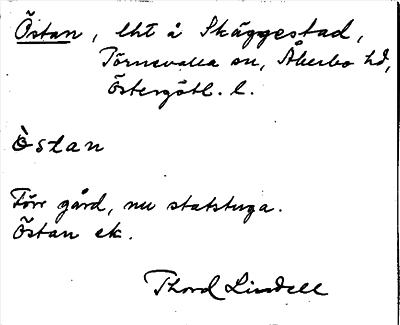 Östan, lht å Skäggestad,
Törnevalla sn, Åkerbo hd,
Östergötl. l.
Òstan
Förr gård, nu statstuga.
Östan ek.
Thord Lindell